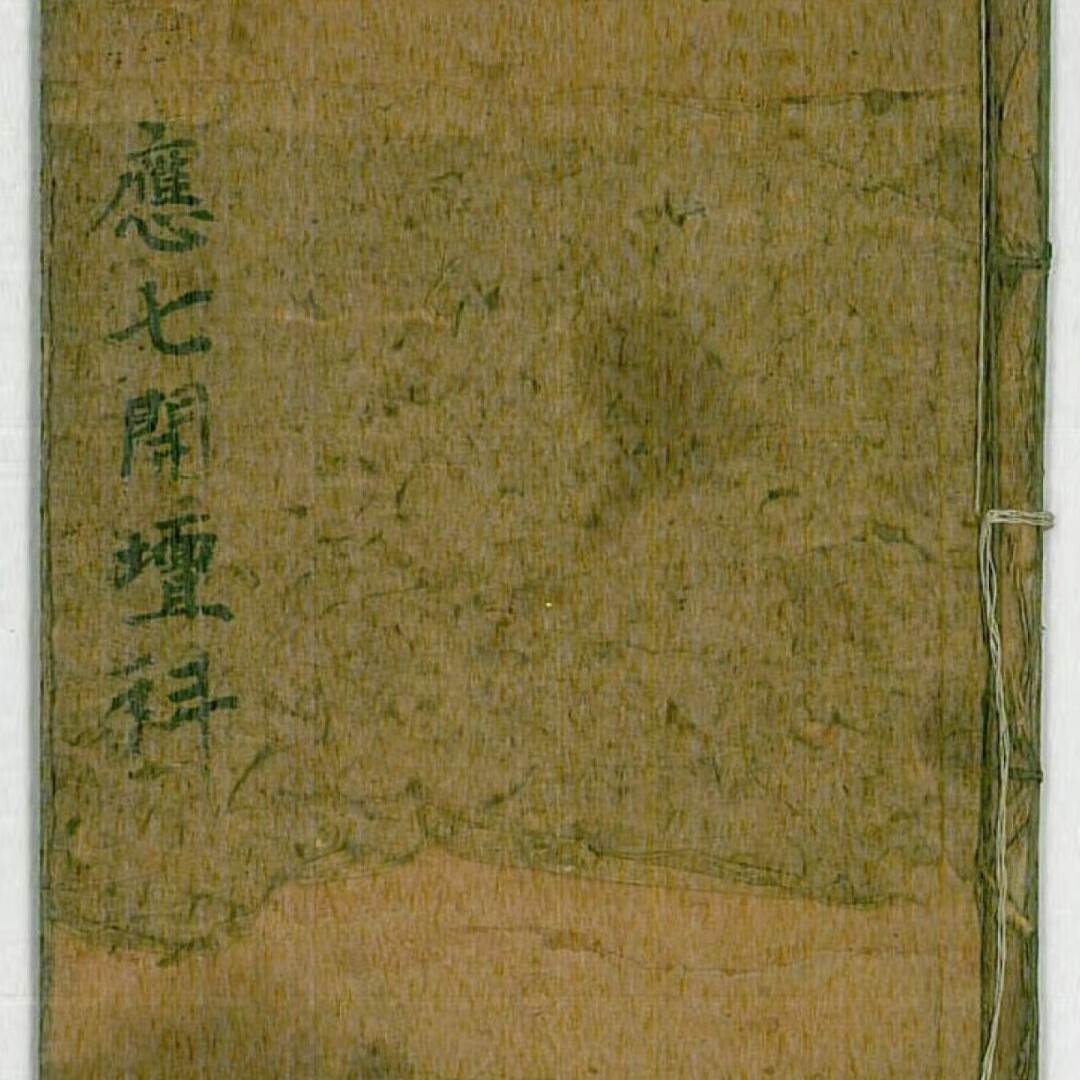 應七開壇科